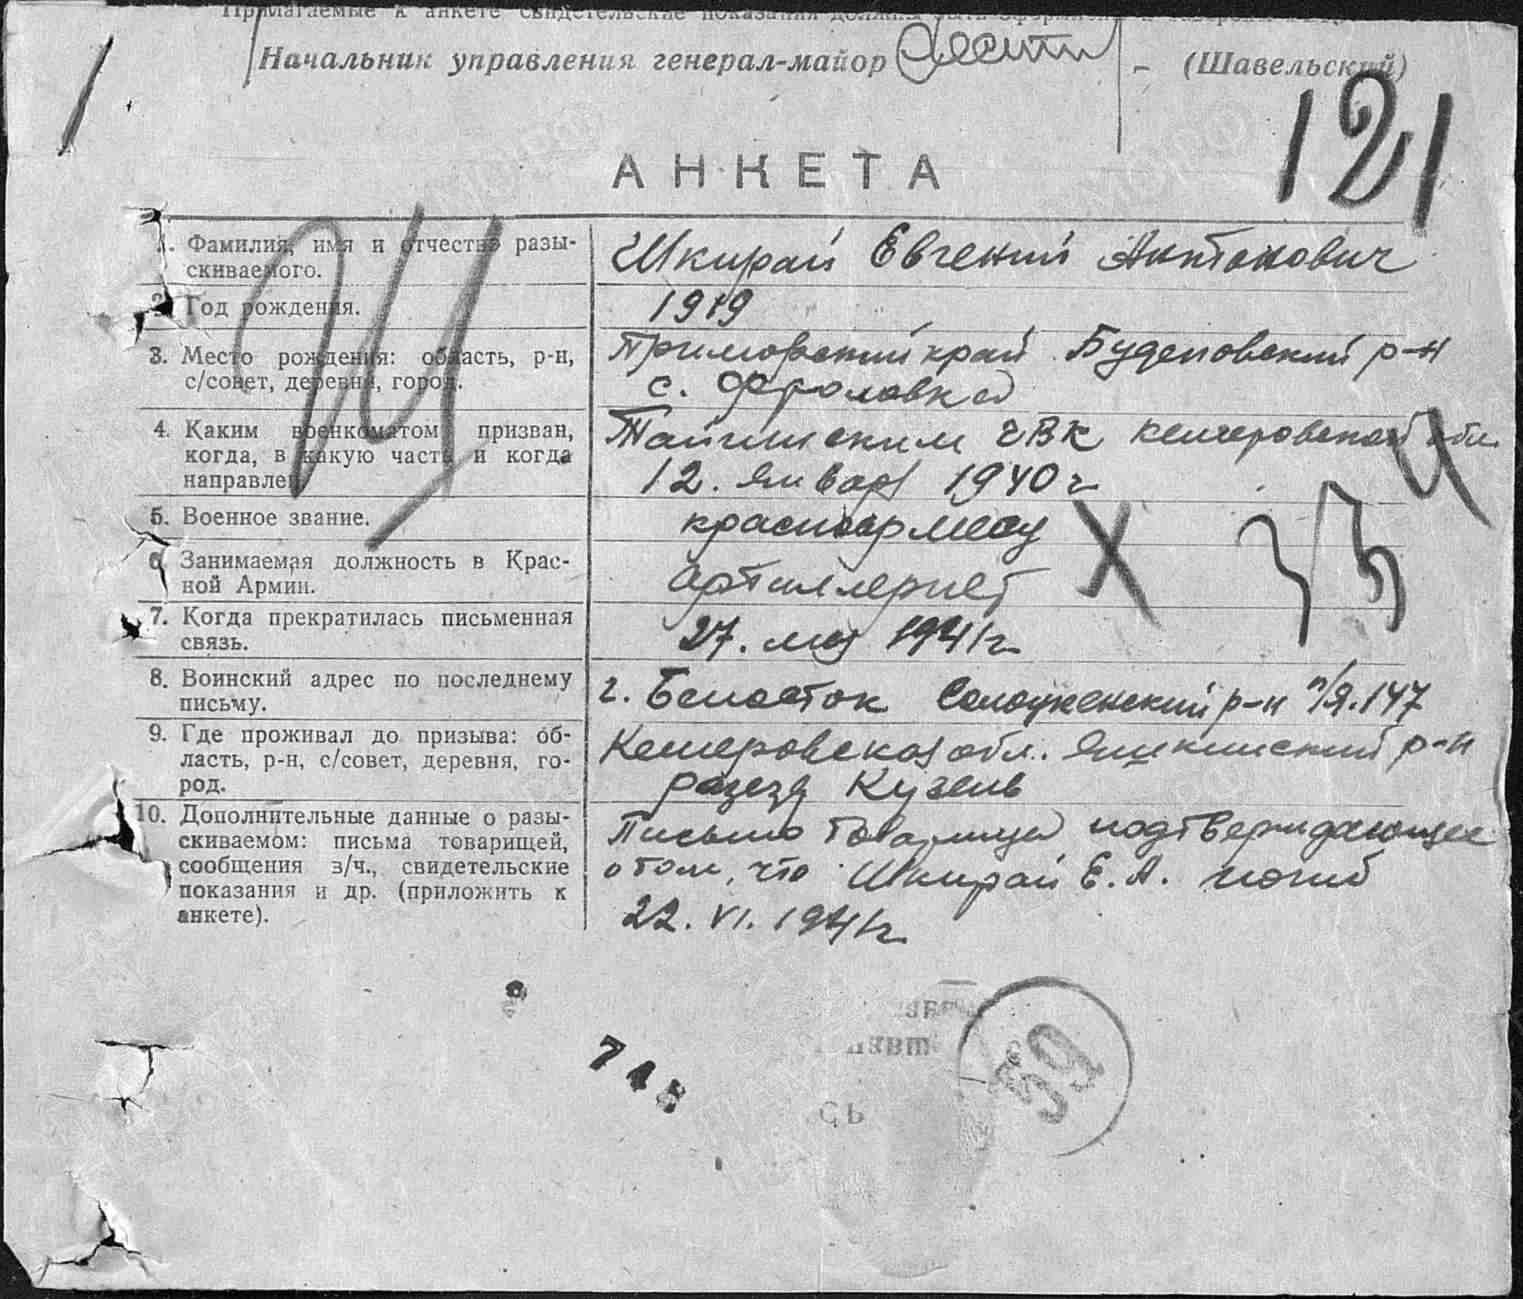 Прилагаемые к анкете свидетельские показания должны быть
Начальник управления генерал-майор (Шавельский)
121
АНКЕТА
1. Фамилия, имя и отчество разы-
скиваемого.
Шкирай Евгений Антонович
2. Год рождения.
1919
3. Место рождения: область, р-н,
с/совет, деревня, город.
Приморский край Буденовский р-н
с. Фроловка
4. Каким военкоматом призван,
когда, в какую часть и когда
направлен.
Тайгинским ГВК Кемеровской обл.
12. января 1940 г
5. Военное звание.
красноармеец
6. Занимаемая должность в Крас-
ной Армии.
артиллерист
7. Когда прекратилась письменная
связь.
27. мая 1941 г.
8. Воинский адрес по последнему
письму.
г. Белосток р-н п/я. 147
9. Где проживал до призыва: об-
ласть, р-н, с/совет, деревня, го-
род.
Кемеровская обл. Яшкинский р-н
разезд Кузель
10. Дополнительные данные о разы-
скиваемом: письма товарищей,
сообщения з/ч., свидетельские
показания и др. (приложить к
анкете).
Письмо товарища подтверждающее
о том, что Шкирай Е. А. погиб
22. VI. 1941 г.
59